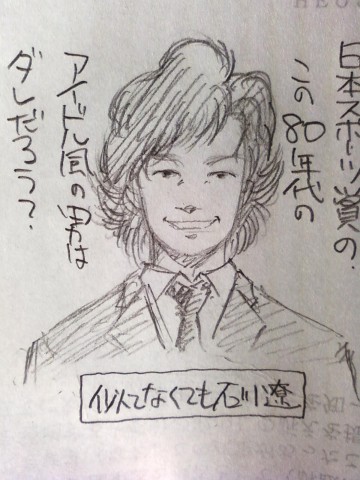 日本スポーツ賞の
この80年代の
アイドル風の男は
ダレだろう？
似てなくても石川遼